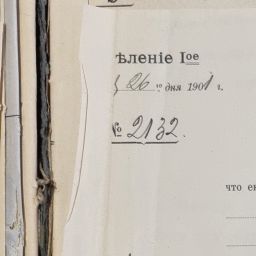 ѣленіе Iое
26 го дня 1901 г.
№ 2132.
что ен